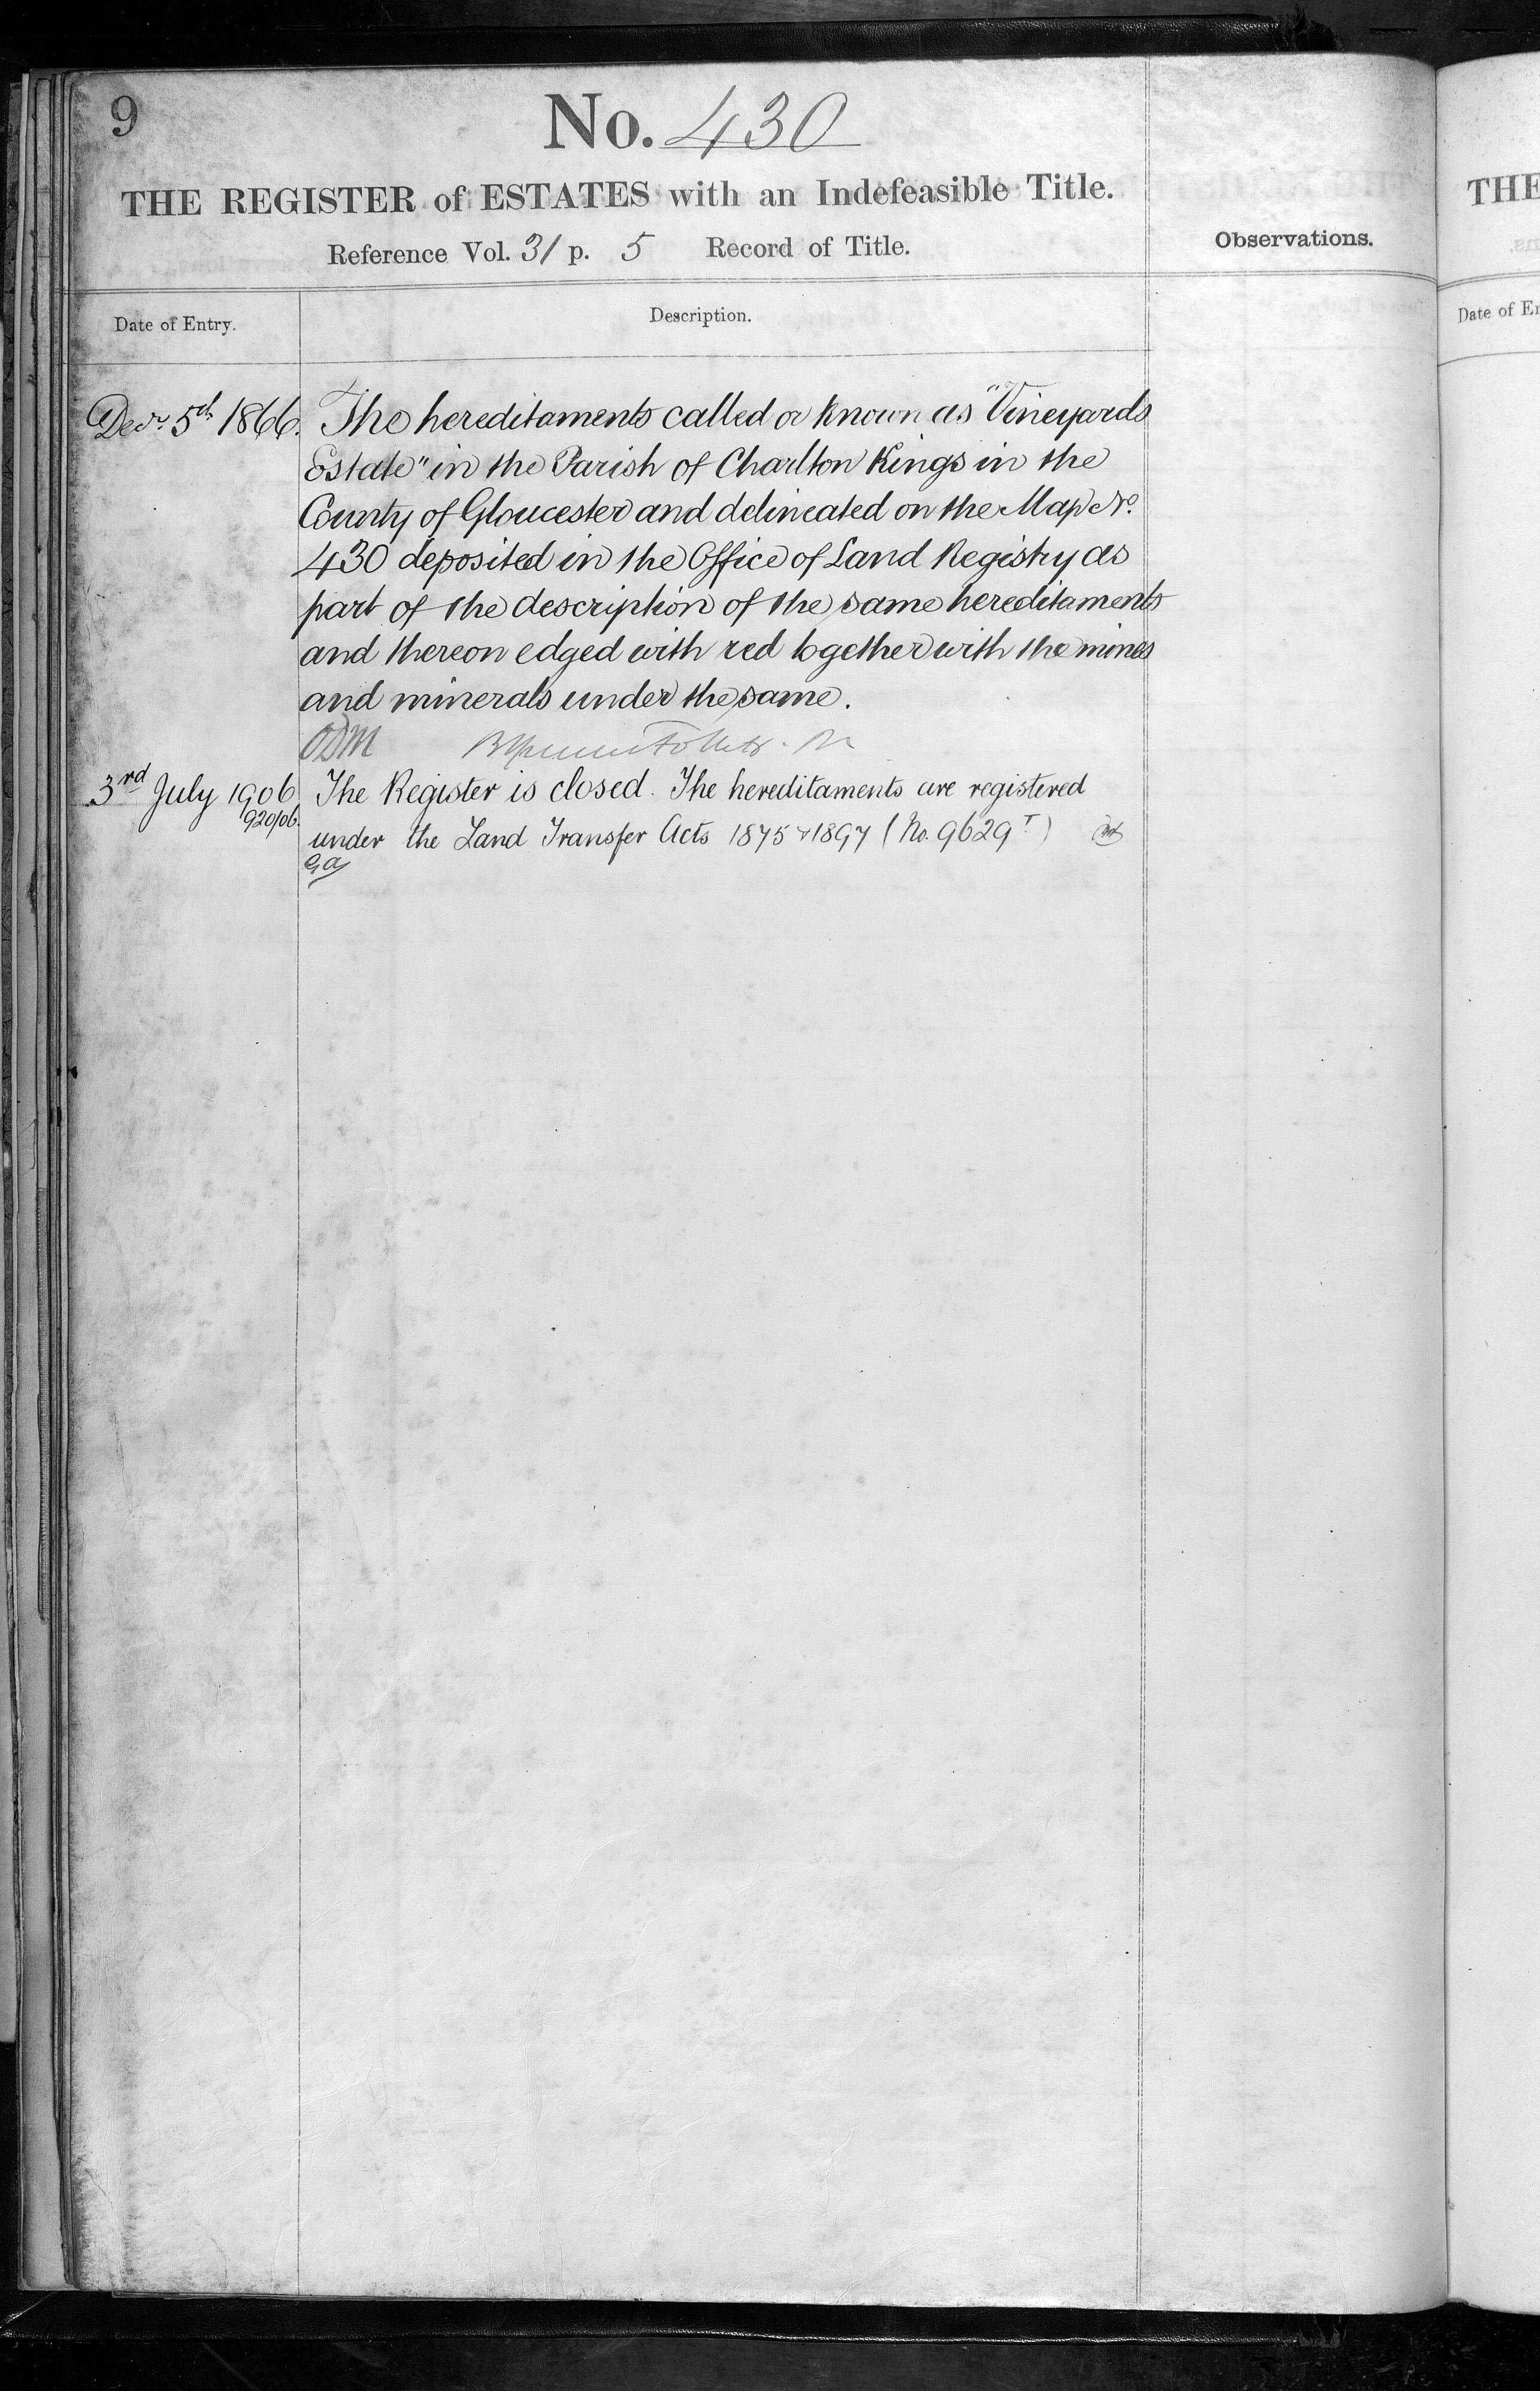 9
No. 430
THE REGISTER of ESTATES with an Indefeasible Title.
Reference Vol. 31 p. 5 Record of Title.
Observations.
Date of Entry.
Description.
Decr. 5th 1866. The hereditaments called or known as "Vineyards
Estate" in the Parish of Charlton Kings in the
County of Gloucester and delineated on the Map No.
430 deposited in the Office of Land Registry as
part of the description of the same hereditaments
and thereon edged with red together with the mines
and minerals under the same.
ODM
3rd July 1906 The Register is closed. The hereditaments are registered
920/06.
under the Land Transfer Acts 1875 & 1897 (No. 9629T)
THE
Date of En